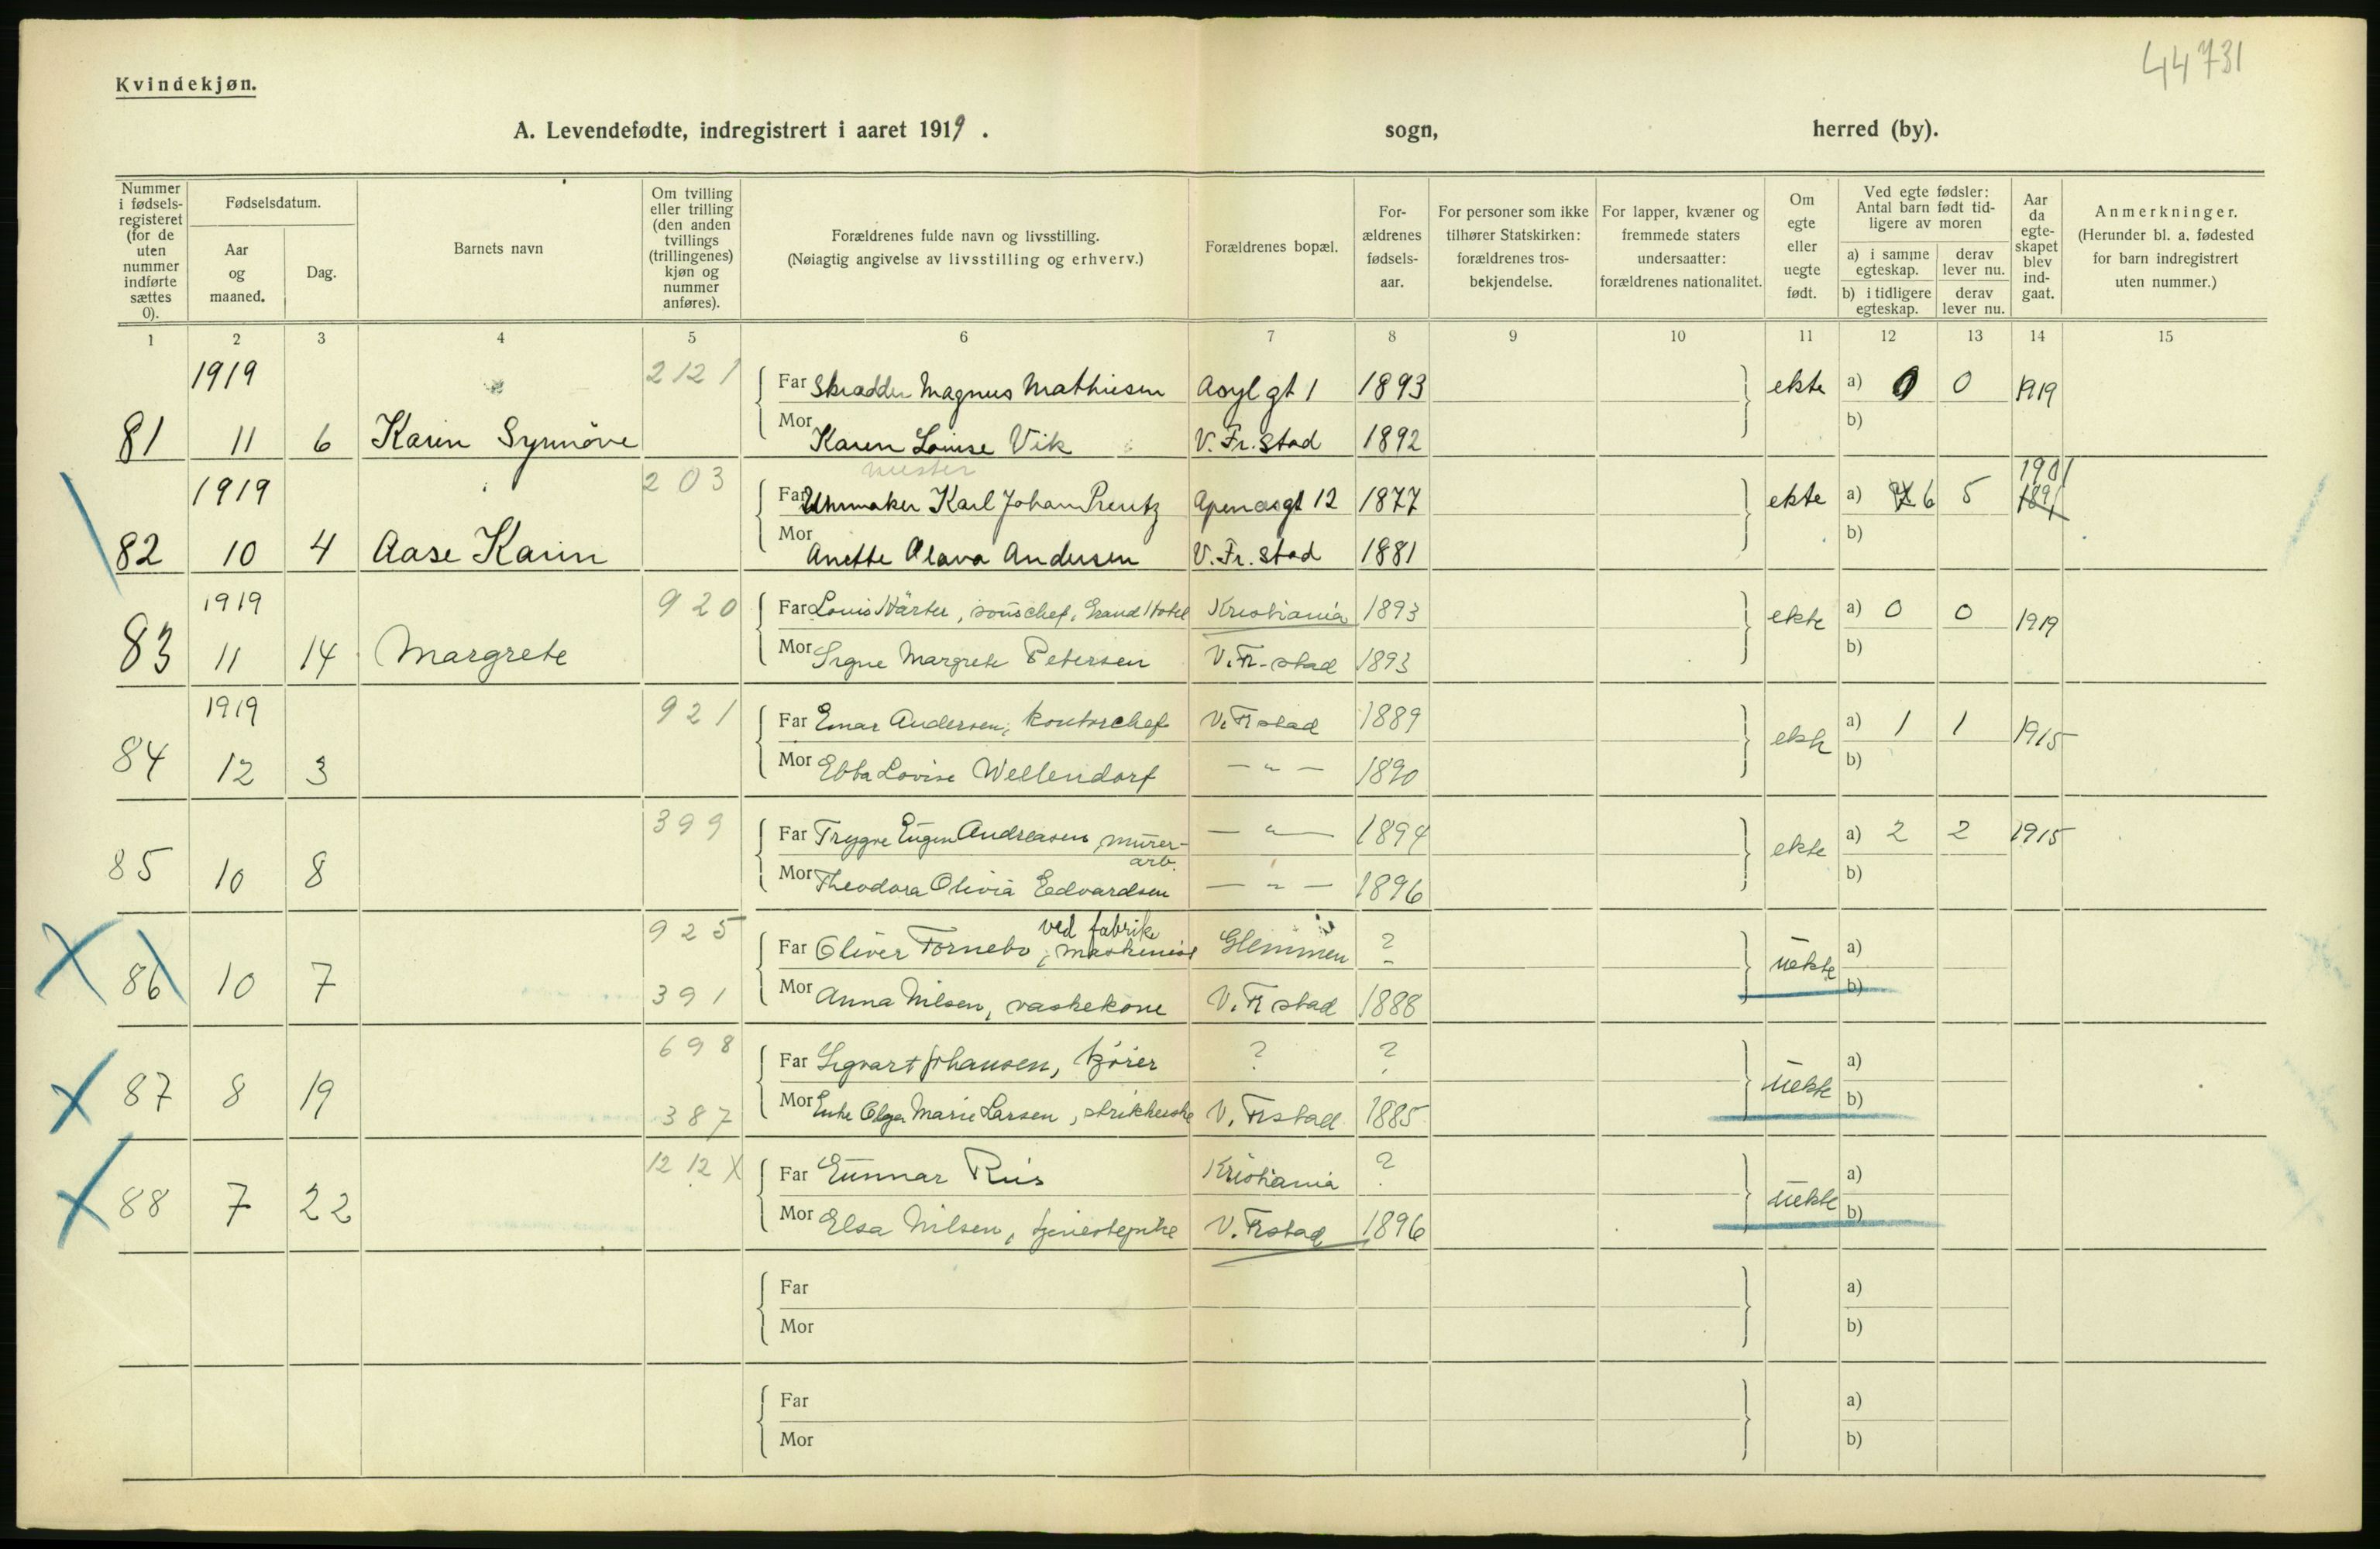 44731
Kvindekjøn.
A. Levendefødte, indregistrert i aaret 1919. sogn, herred (by).
Nummer i fødsels- registeret (for de uten nummer indførte sættes 0).
Fødselsdatum.
Aar og maaned.
Dag.
Barnets navn
Om tvilling eller trilling (den anden tvillings (trillingenes) kjøn og nummer anføres).
Forældrenes fulde navn og livsstilling.
(Nøiagtig angivelse av livsstilling og erhverv.)
Forældrenes bopæl.
For- ældrenes fødsels- aar.
For personer som ikke tilhører Statskirken: forældrenes tros- bekjendelse.
For lapper, kvæner og fremmede staters undersaatter: forældrenes nationalitet.
Om egte eller uegte født.
Ved egte fødsler: Antal barn født tid- ligere av moren
a) i samme egteskap. derav lever nu.
b) i tidligere egteskap. derav lever nu.
Aar da egte- skapet blev ind- gaat.
Anmerkninger.
(Herunder bl. a. fødested for barn indregistrert uten nummer.)
1 2 3 4 5 6 7 8 9 10 11 12 13 14 15
1919 2121 Far Skrædder Magnus Mathiesen Asylgt 1 1893 ekte a) 0 0 1919
81 11 6 Karin Synnöve Mor Karen Louise Vik V. Fr.stad 1892 b)
mester 1901
1919 203 Far Uhrmaker Karl Johan Preutz Apenæsgt 12 1877 ekte a) 6 5 1891
82 10 4 Aase Karin Mor Anette Olava Andersen V. Fr. stad 1881 b)
1919 920 Far Louis Härter, souschef, Grand Hotel Kristiania 1893 ekte a) 0 0 1919
83 11 14 Margrete Mor Signe Margrete Petersen V. Fr-stad 1893 b)
1919 921 Far Einar Andersen, kontorchef V. Frstad 1889 ekte a) 1 1 1915
84 12 3 Mor Ebba Lovise Wellendorf — " — 1890 b)
399 Far Trygve Eugen Andreasen, murer- — " — 1894 ekte a) 2 2 1915
arb.
85 10 8 Mor Theodora Olivia Edvardsen — " — 1896 b)
ved fabrik
925 Far Oliver Tornebo, maskinist Glemmen ? uekte a)
86 10 7 391 Mor Anna Nilsen, vaskekone V. Fr stad 1888 b)
698 Far Sigvart Johansen, kjører ? ? uekte a)
87 8 19 387 Mor Enke Olga Marie Larsen, strikkerske V. Frstad 1885 b)
1212 X Far Gunnar Riis Kristiania ? uekte a)
88 7 22 Mor Elsa Nilsen, tjenestepike V. Frstad 1896 b)
Far a)
Mor b)
Far a)
Mor b)